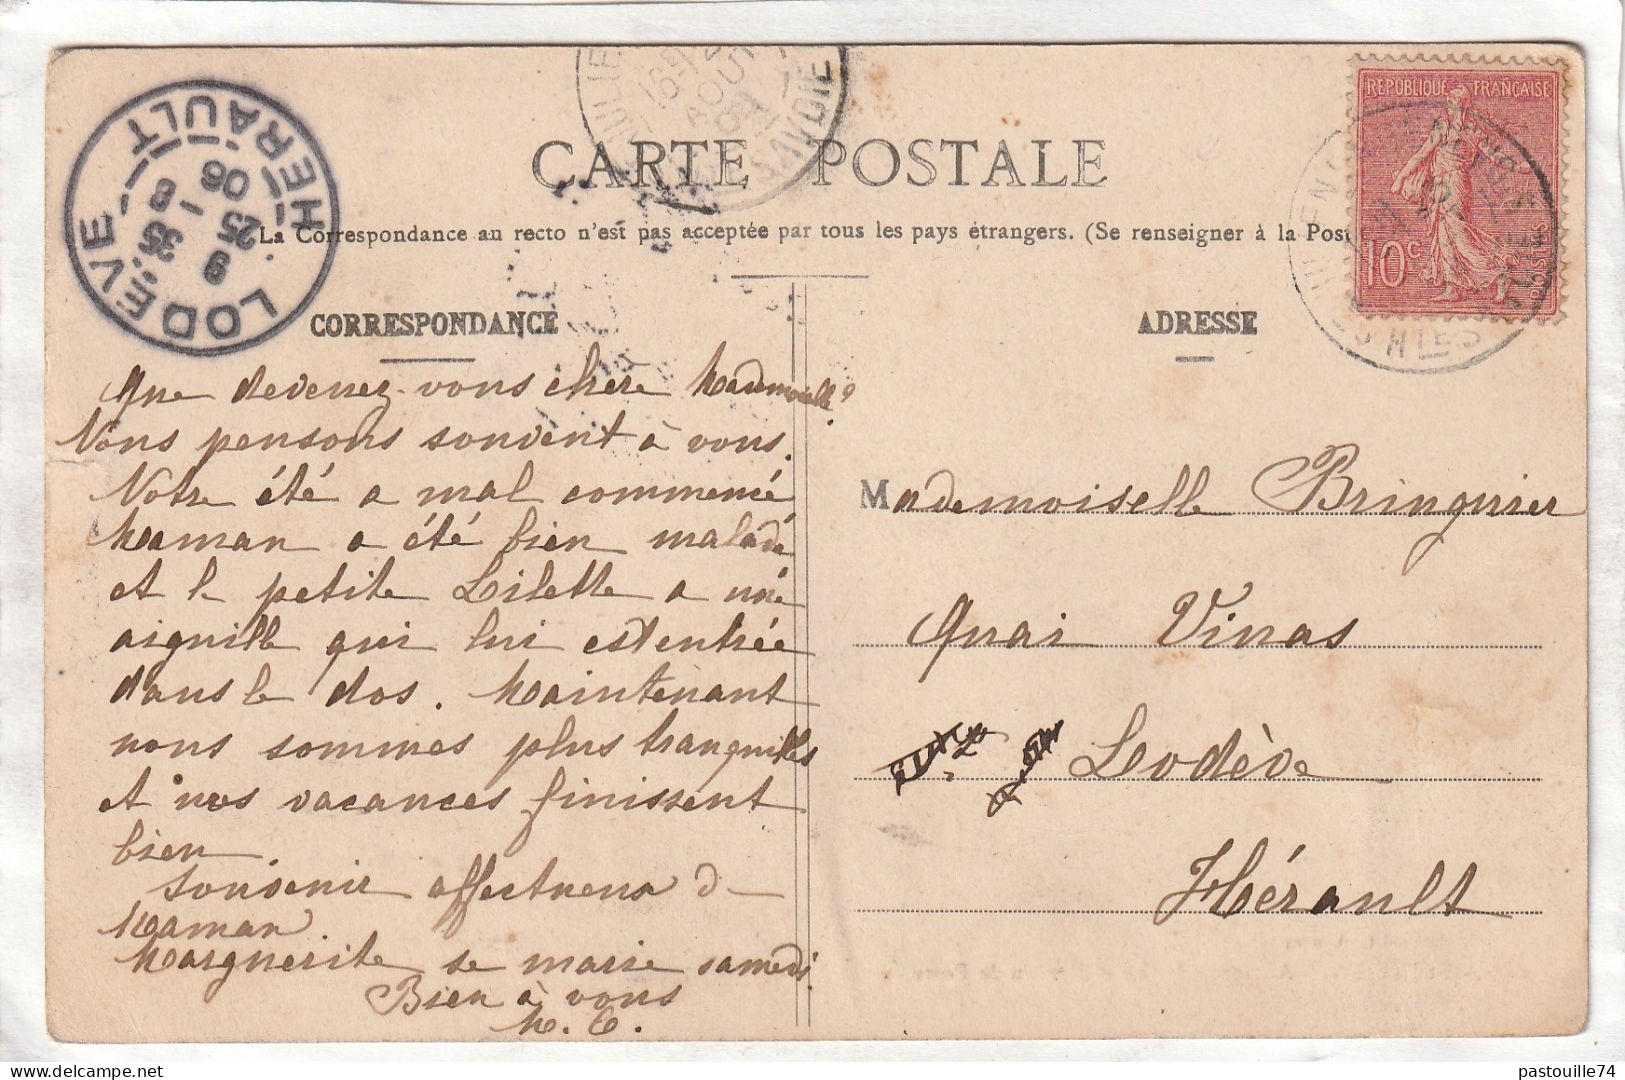 CARTE POSTALE
La Correspondance au recto n'est pas acceptée par tous les pays étrangers. (Se renseigner à la Post
REPUBLIQUE FRANÇAISE
10c
POSTES
LODEVE
HERAULT
9 35
25 - 8
06
AOUT
SAVOIE
CORRESPONDANCE
ADRESSE
Que devenez-vous chère Mademoiselle?
Nous pensons souvent à vous.
Notre été a mal commencé
Maman a été bien malade
et la petite Lilette a une
aiguille qui lui est entrée
dans le dos. Maintenant
nous sommes plus tranquilles
et nos vacances finissent
bien
Souvenir affectueux de
Maman.
Marguerite se marie samedi.
Bien à vous
M. C.
Mademoiselle Bringuier
Quai Vinas
Lodève
Hérault
pastouille74